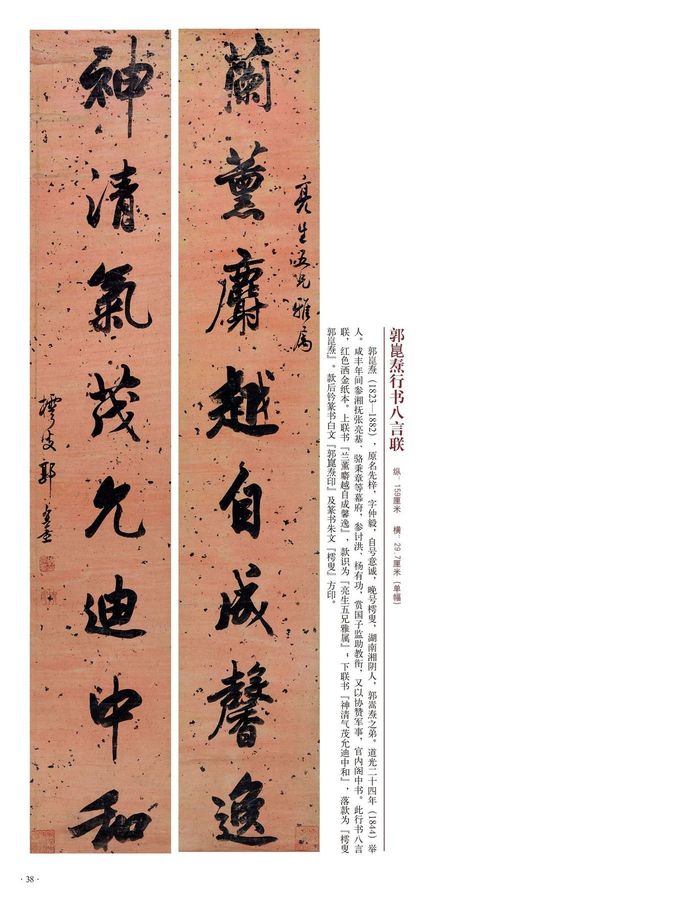 郭崑焘行书八言联
纵：159厘米　横：29.7厘米（单幅）
郭崑焘（1823—1882），原名先梓，字仲毅，自号意诚，晚号樗叟，湖南湘阴人，郭嵩焘之弟。道光二十四年（1844）举
人。咸丰年间参湘抚张亮基、骆秉章等幕府，参讨洪、杨有功，赏国子监助教衔，又以协赞军事，官内阁中书。此行书八言
联，红色洒金纸本。上联书『兰薰麝越自成馨逸』，款识为『亮生五兄雅属』；下联书『神清气茂允迪中和』，落款为『樗叟
郭崑焘』。款后钤篆书白文『郭崑焘印』及篆书朱文『樗叟』方印。
亮生五兄雅属
蘭薰麝越自成馨逸
神清氣茂允迪中和
樗叟郭崑焘
· 38 ·